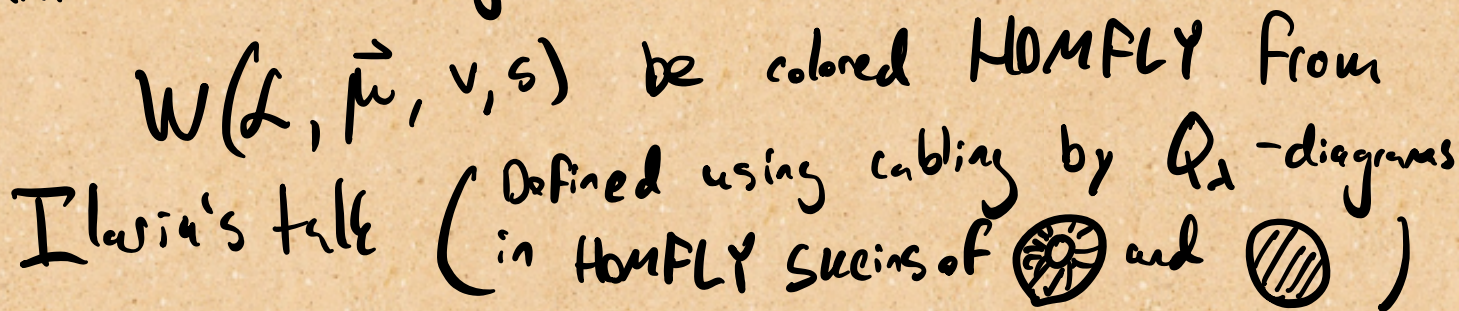 W(L, μ⃗, v, s) be colored HOMFLY from
Ilaria's talk (Defined using cabling by Q_λ-diagrams
in HOMFLY skeins of and )